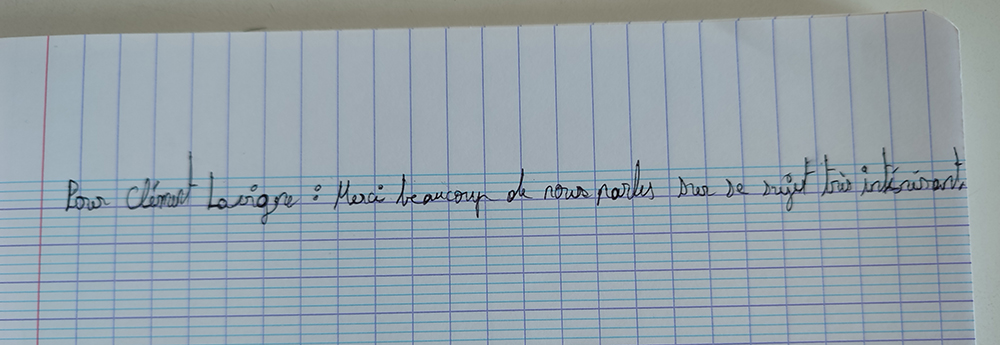 Pour Clément Lavigne : Merci beaucoup de nous parler sur se sujet très intérissant.